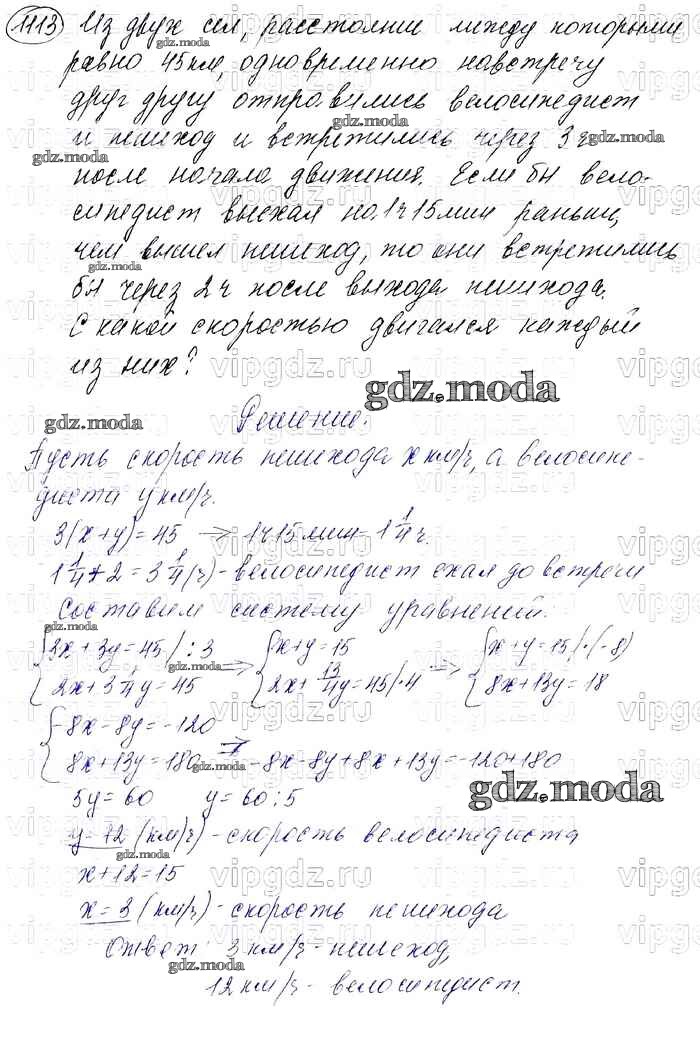 1113 Из двух сел, расстояние между которыми
равно 45 км, одновременно навстречу
друг другу отправились велосипедист
и пешеход и встретились через 3 ч
после начала движения. Если бы вело-
сипедист выехал на 1ч 15 мин раньше,
чем вышел пешеход, то они встретились
бы через 2 ч после выхода пешехода.
С какой скоростью двигался каждый
из них?
gdz.moda
Решение.
Пусть скорость пешехода x км/ч, а велосипе-
диста y км/ч.
3(x+y)=45 → 1ч 15 мин = 1 1/4 ч.
1 1/4 + 2 = 3 1/4 (ч) - велосипедист ехал до встречи
Составим систему уравнений:
{3x + 3y = 45 | : 3 ⇒ {x+y = 15 ⇒ {x + y = 15 | ·(-8)
{2x + 3 1/4 y = 45 {2x + 13/4 y = 45 | ·4 {8x + 13y = 18
{-8x - 8y = -120
{8x + 13y = 180 ⇒ -8x - 8y + 8x + 13y = -120 + 180
5y = 60 y = 60 : 5
gdz.moda
y = 12 (км/ч) - скорость велосипедиста
x + 12 = 15
x = 3 (км/ч) - скорость пешехода
Ответ: 3 км/ч - пешеход,
12 км/ч - велосипедист.